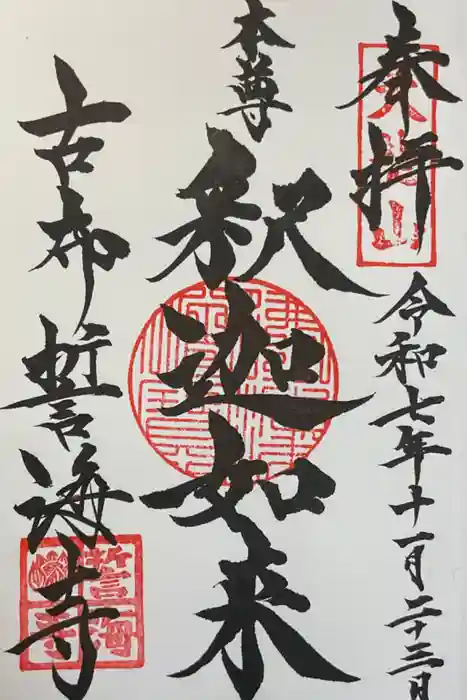 奉拝
令和七年十一月二十三日
本尊
釈迦如来
古布 誓海寺
誓海寺